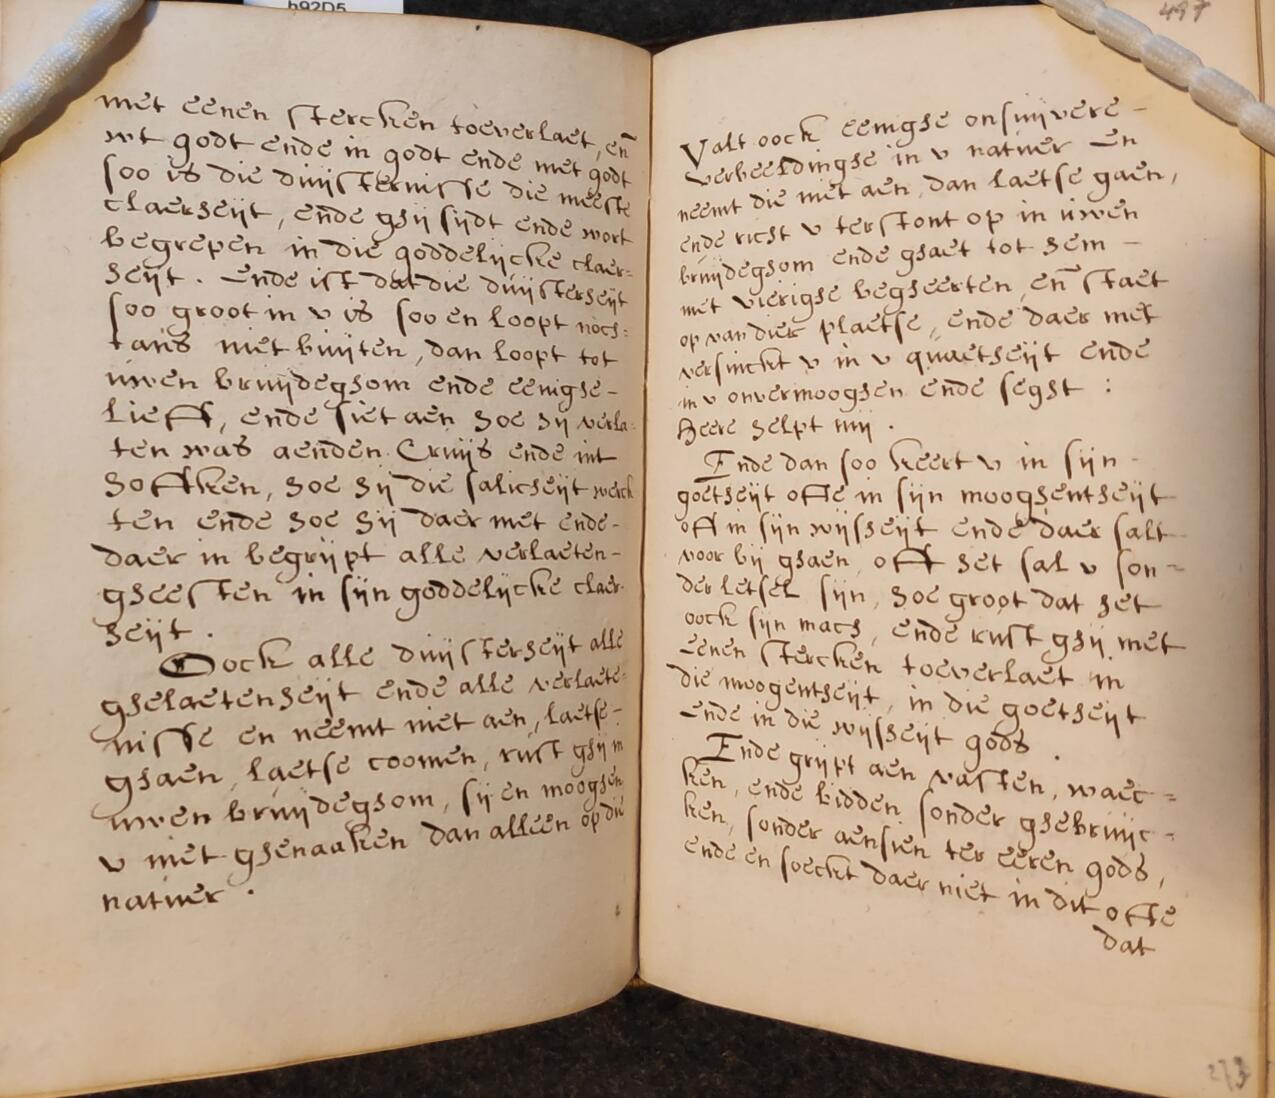 h92D5
met eenen stercken toeverlaet, en̄
wt godt ende in godt ende met godt
soo is die duijsternisse die meeste
claerheijt, ende ghij sijdt ende wort
begrepen in die goddelijcke claer=
heijt. Ende ist dat die duijsterheijt
soo groot in v is soo en loopt noch=
tans niet buijten, dan loopt tot
uwen bruijdeghom ende eenighe-
lieff, ende siet aen hoe hij verla=
ten was aenden Cruijs ende int
hoffken, hoe hij die salicheijt werck
ten ende hoe hij daer met ende-
daer in begrijpt alle verlaeten-
gheesten in sijn goddelijcke claer-
heijt.
Oock alle duijsterheijt alle
ghelaetenheijt ende alle verlaete=
nisse en neemt niet aen, laetse-
ghaen, laetse coomen, rust ghij in
uwen bruijdeghom, sij en mooghen
v niet ghenaaken dan alleen op die
natuer.
497
Valt oock eenighe onsuijvere-
verbeeldinghe in v natuer En
neemt die niet aen, dan laetse gaen,
ende richt v terstont op in uwen
bruijdeghom ende ghaet tot hem-
met vierighe begheerten, en̄ staet
op van dier plaetse, ende daer met
versinckt v in v quaetheijt ende
in v onvermooghen ende seght:
Heere helpt mij.
Ende dan soo keert v in sijn-
goetheijt ofte in sijn mooghentheijt
oft in sijn wijsheijt ende daer salt
voor bij ghaen, oft het sal v son=
der letsel sijn, hoe groot dat het
oock sijn mach, ende rust ghij met
eenen stercken toeverlaet in
die moogentheijt, in die goetheijt
ende in die wijsheijt gods.
Ende grijpt aen vasten, waec=
ken, ende bidden sonder ghebruijc=
ken, sonder aensien ter eeren gods,
ende en soeckt daer niet in dit ofte
dat
273